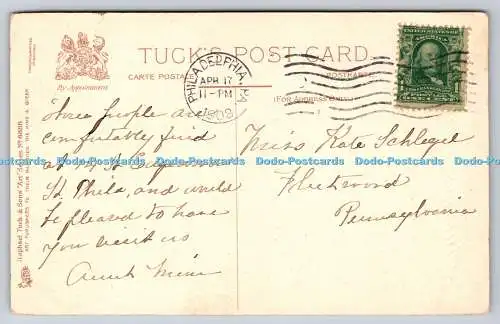 TUCK'S POST CARD.
CARTE POSTALE
POSTKARTE
(FOR ADDRESS ONLY.)
By Appointment
Raphael Tuck & Sons' "Art" Series No
PHILADELPHIA, PA.
APR 17
11-PM
1908
These people are
comfortably fixed
at
St. Phila, and would
be pleased to have
you visit us
Aunt Mim
Miss Kate Schlegel
Fleetwood
Pennsylvania
Dodo-Postcards Dodo-Postcards Dodo-Postcards Dodo-Postcards Dodo-Postcards Dodo-Postcards